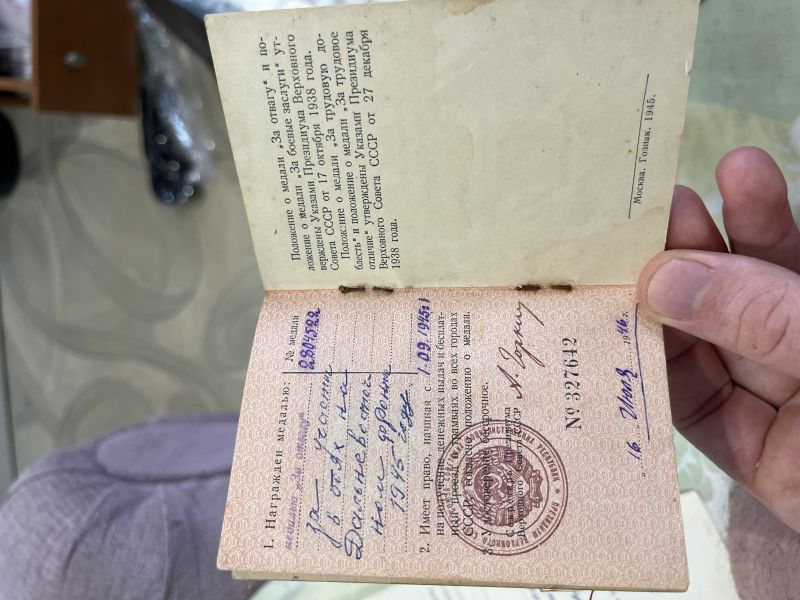 1. Награжден медалью:
№ медали
медалью „За отвагу“
2804522
за участие
в боях на
Дальневосточ
ном фронте
1945 году
2. Имеет право, начиная с 1.09.1945 г.
на получение денежных выдач и бесплат-
ный проезд в трамваях во всех городах
СССР, согласно положению о медали.
3. Удостоверение бессрочное.
Секретарь Президиума
Верховного Совета СССР
А. Горкин
№ 327642
„16“ 1946 г.
Положение о медали „За отвагу“ и по-
ложение о медали „За боевые заслуги“ ут-
верждены Указами Президиума Верховного
Совета СССР от 17 октября 1938 года.
Положение о медали „За трудовую до-
блесть“ и положение о медали „За трудовое
отличие“ утверждены Указами Президиума
Верховного Совета СССР от 27 декабря
1938 года.
Москва. Гознак. 1945.